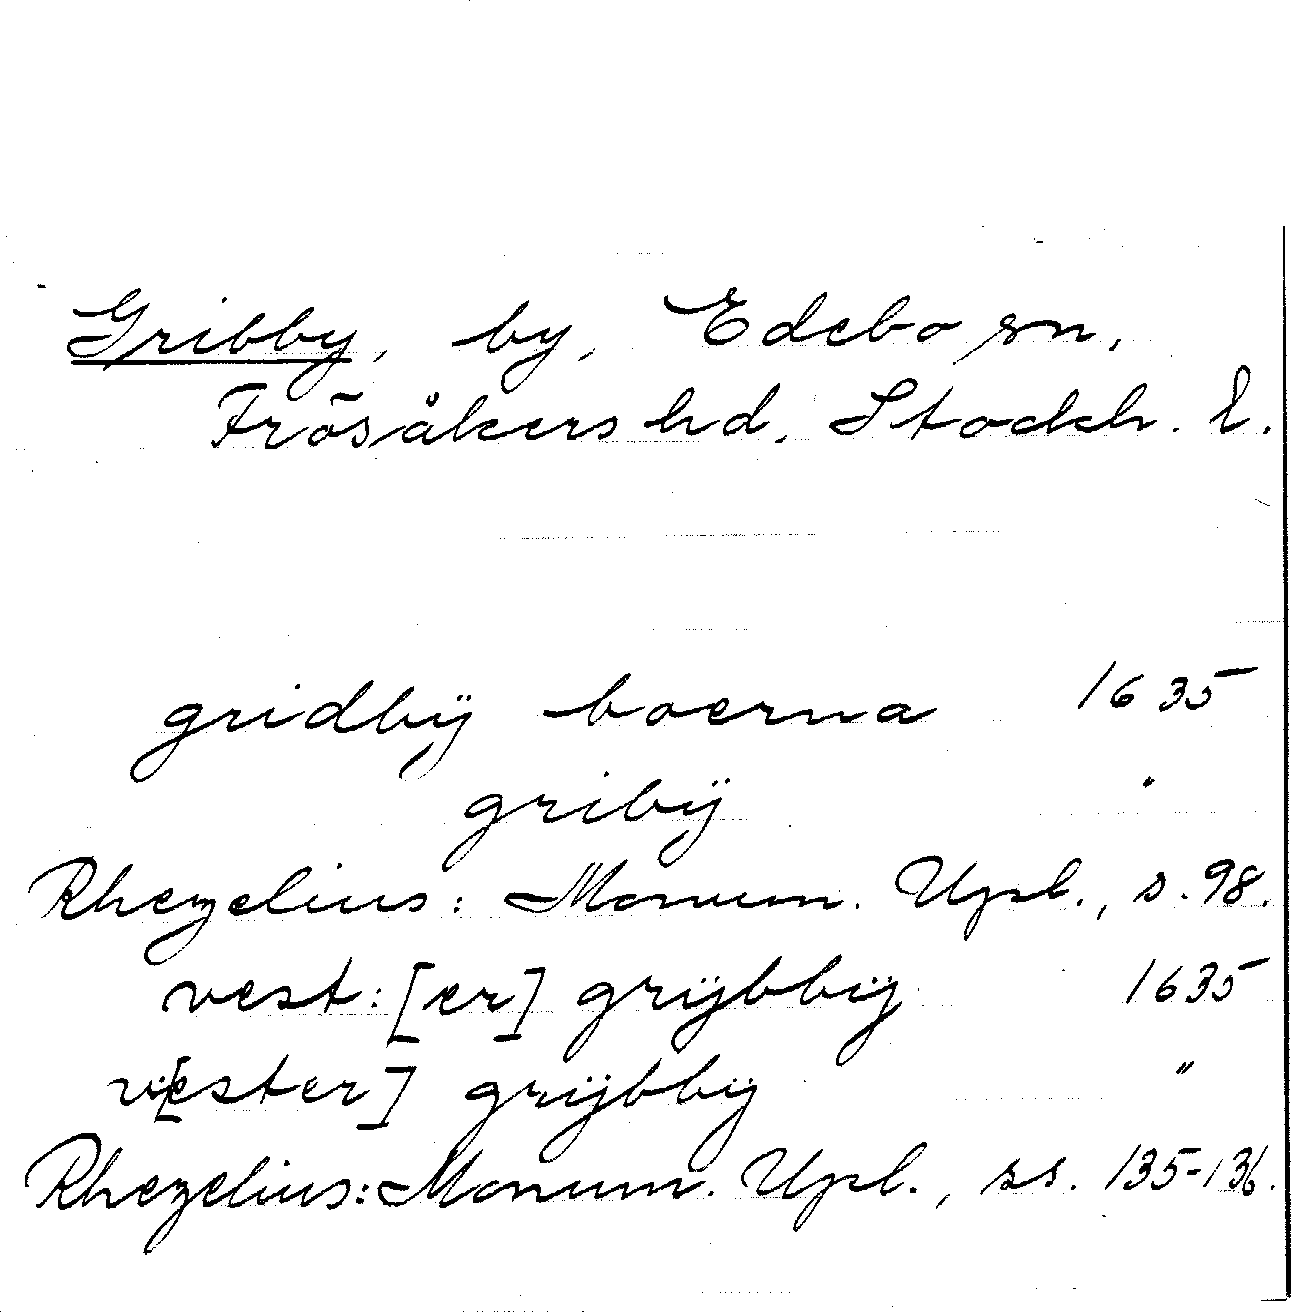 Gribby, by, Edebo sn,
Frösåkers hd, Stockh. l.
gridbÿ boerna 1635
gribÿ "
Rhezelius: Monum. Upl., s. 98.
vest:[er] grÿbbÿ 1635
v:[ester] grÿbbÿ "
Rhezelius: Monum. Upl., ss. 135-136.